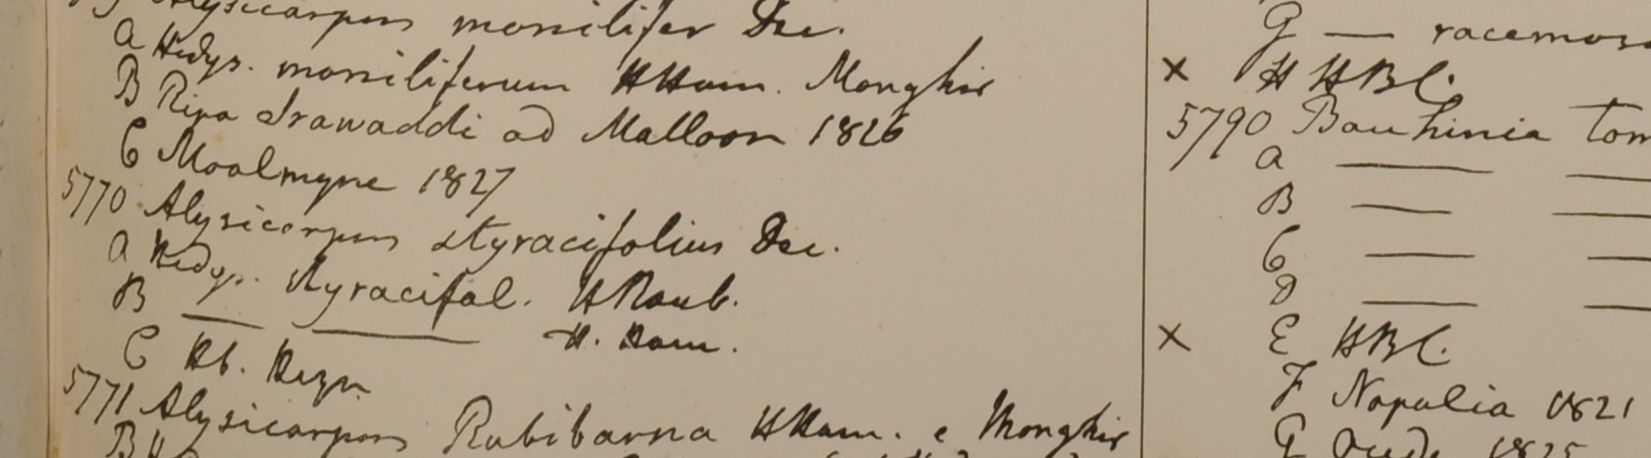 Alysicarpus monilifer Dec.
A Hedys. moniliferum HHam. Monghir
B Ripa Irawaddi ad Malloon 1826
C Moalmyne 1827
5770 Alysicarpus styracifolius Dec.
A Hedys. styracifol. HRoxb.
B — — H. Ham.
C Hb. Heyn
5771 Alysicarpus Rubibarna HHam. e Monghir
B
G — racemosa
x H HBC.
5790 Bauhinia tom
A — —
B — —
C — —
D — —
x E HBC.
F Napalia 1821
G Oude 1825